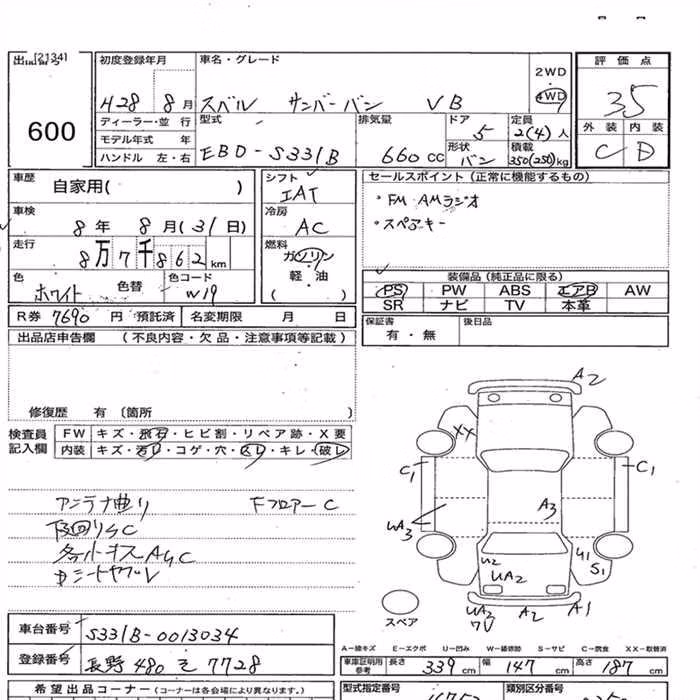 [2134]
600
初度登録年月
H28 年 8 月
車名・グレード
スバル サンバーバン VB
2WD
4WD
評価点
3.5
外装 内装
C D
ディーラー・並行
モデル年式 年
ハンドル 左・右
型式
EBD-S331B
排気量
660 cc
ドア 5
形状 バン
定員 2(4)人
積載 350(250)kg
車歴
自家用( )
車検
8年 8月(31日)
走行
8万7千862km
色
ホワイト 色替
色コード
W19
シフト
IAT
冷房
AC
燃料
ガソリン・
軽・油
( )
セールスポイント(正常に機能するもの)
・FM・AMラジオ
・スペアキー
装備品(純正品に限る)
PS PW ABS エアB AW
SR ナビ TV 本革
R券 7690 円 預託済 名変期限 月 日
保証書
有・無
後日品
出品店申告欄 (不良内容・欠品・注意事項等記載)
修復歴 有〔箇所 〕
検査員
記入欄
FW キズ・飛石・ヒビ割・リペア跡・X要
内装 キズ・汚レ・コゲ・穴・スレ・キレ・破レ
アンテナ曲り 下フロアーC
下回りSC
シートヤブレ
A2
XX
C1
C1
A3
UA3
U2
UA2
U1
S1
UA2
A2
A1
スペア
車台番号 S331B-0013034
登録番号 長野 480 そ 7728
A-線キズ E-エクボ U-凹み W-補修跡 S-サビ C-腐食 XX-取替済
車庫証明用参考 長さ 339 cm 幅 147 cm 高さ 187 cm
希望出品コーナー(コーナーは各会場により異なります。)
型式指定番号
類別区分番号